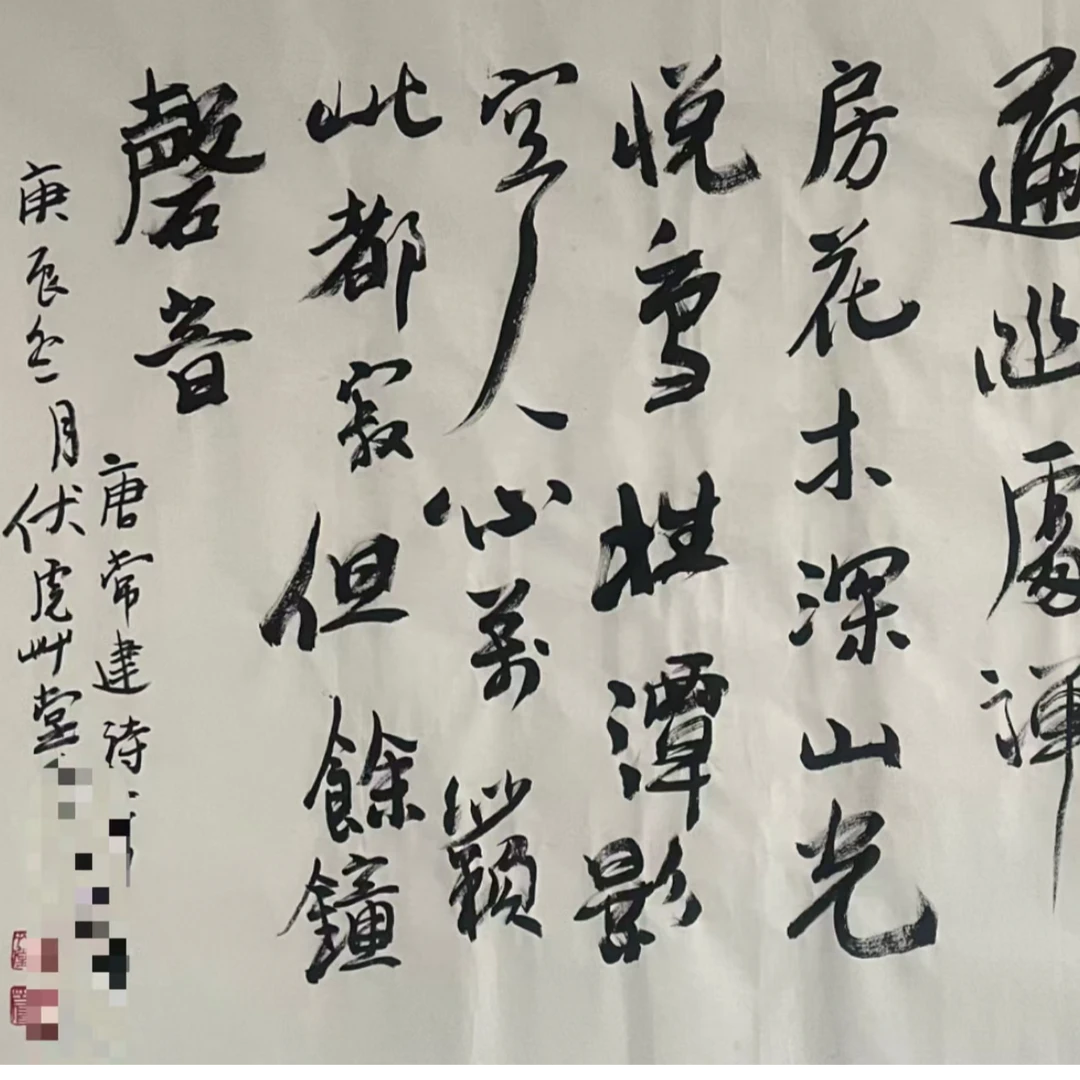 通幽處禪
房花木深山光
悦鳥性潭影
空人心萬籟
此都寂但餘鐘
磬音
唐常建詩
庚辰冬月伏虎艸堂